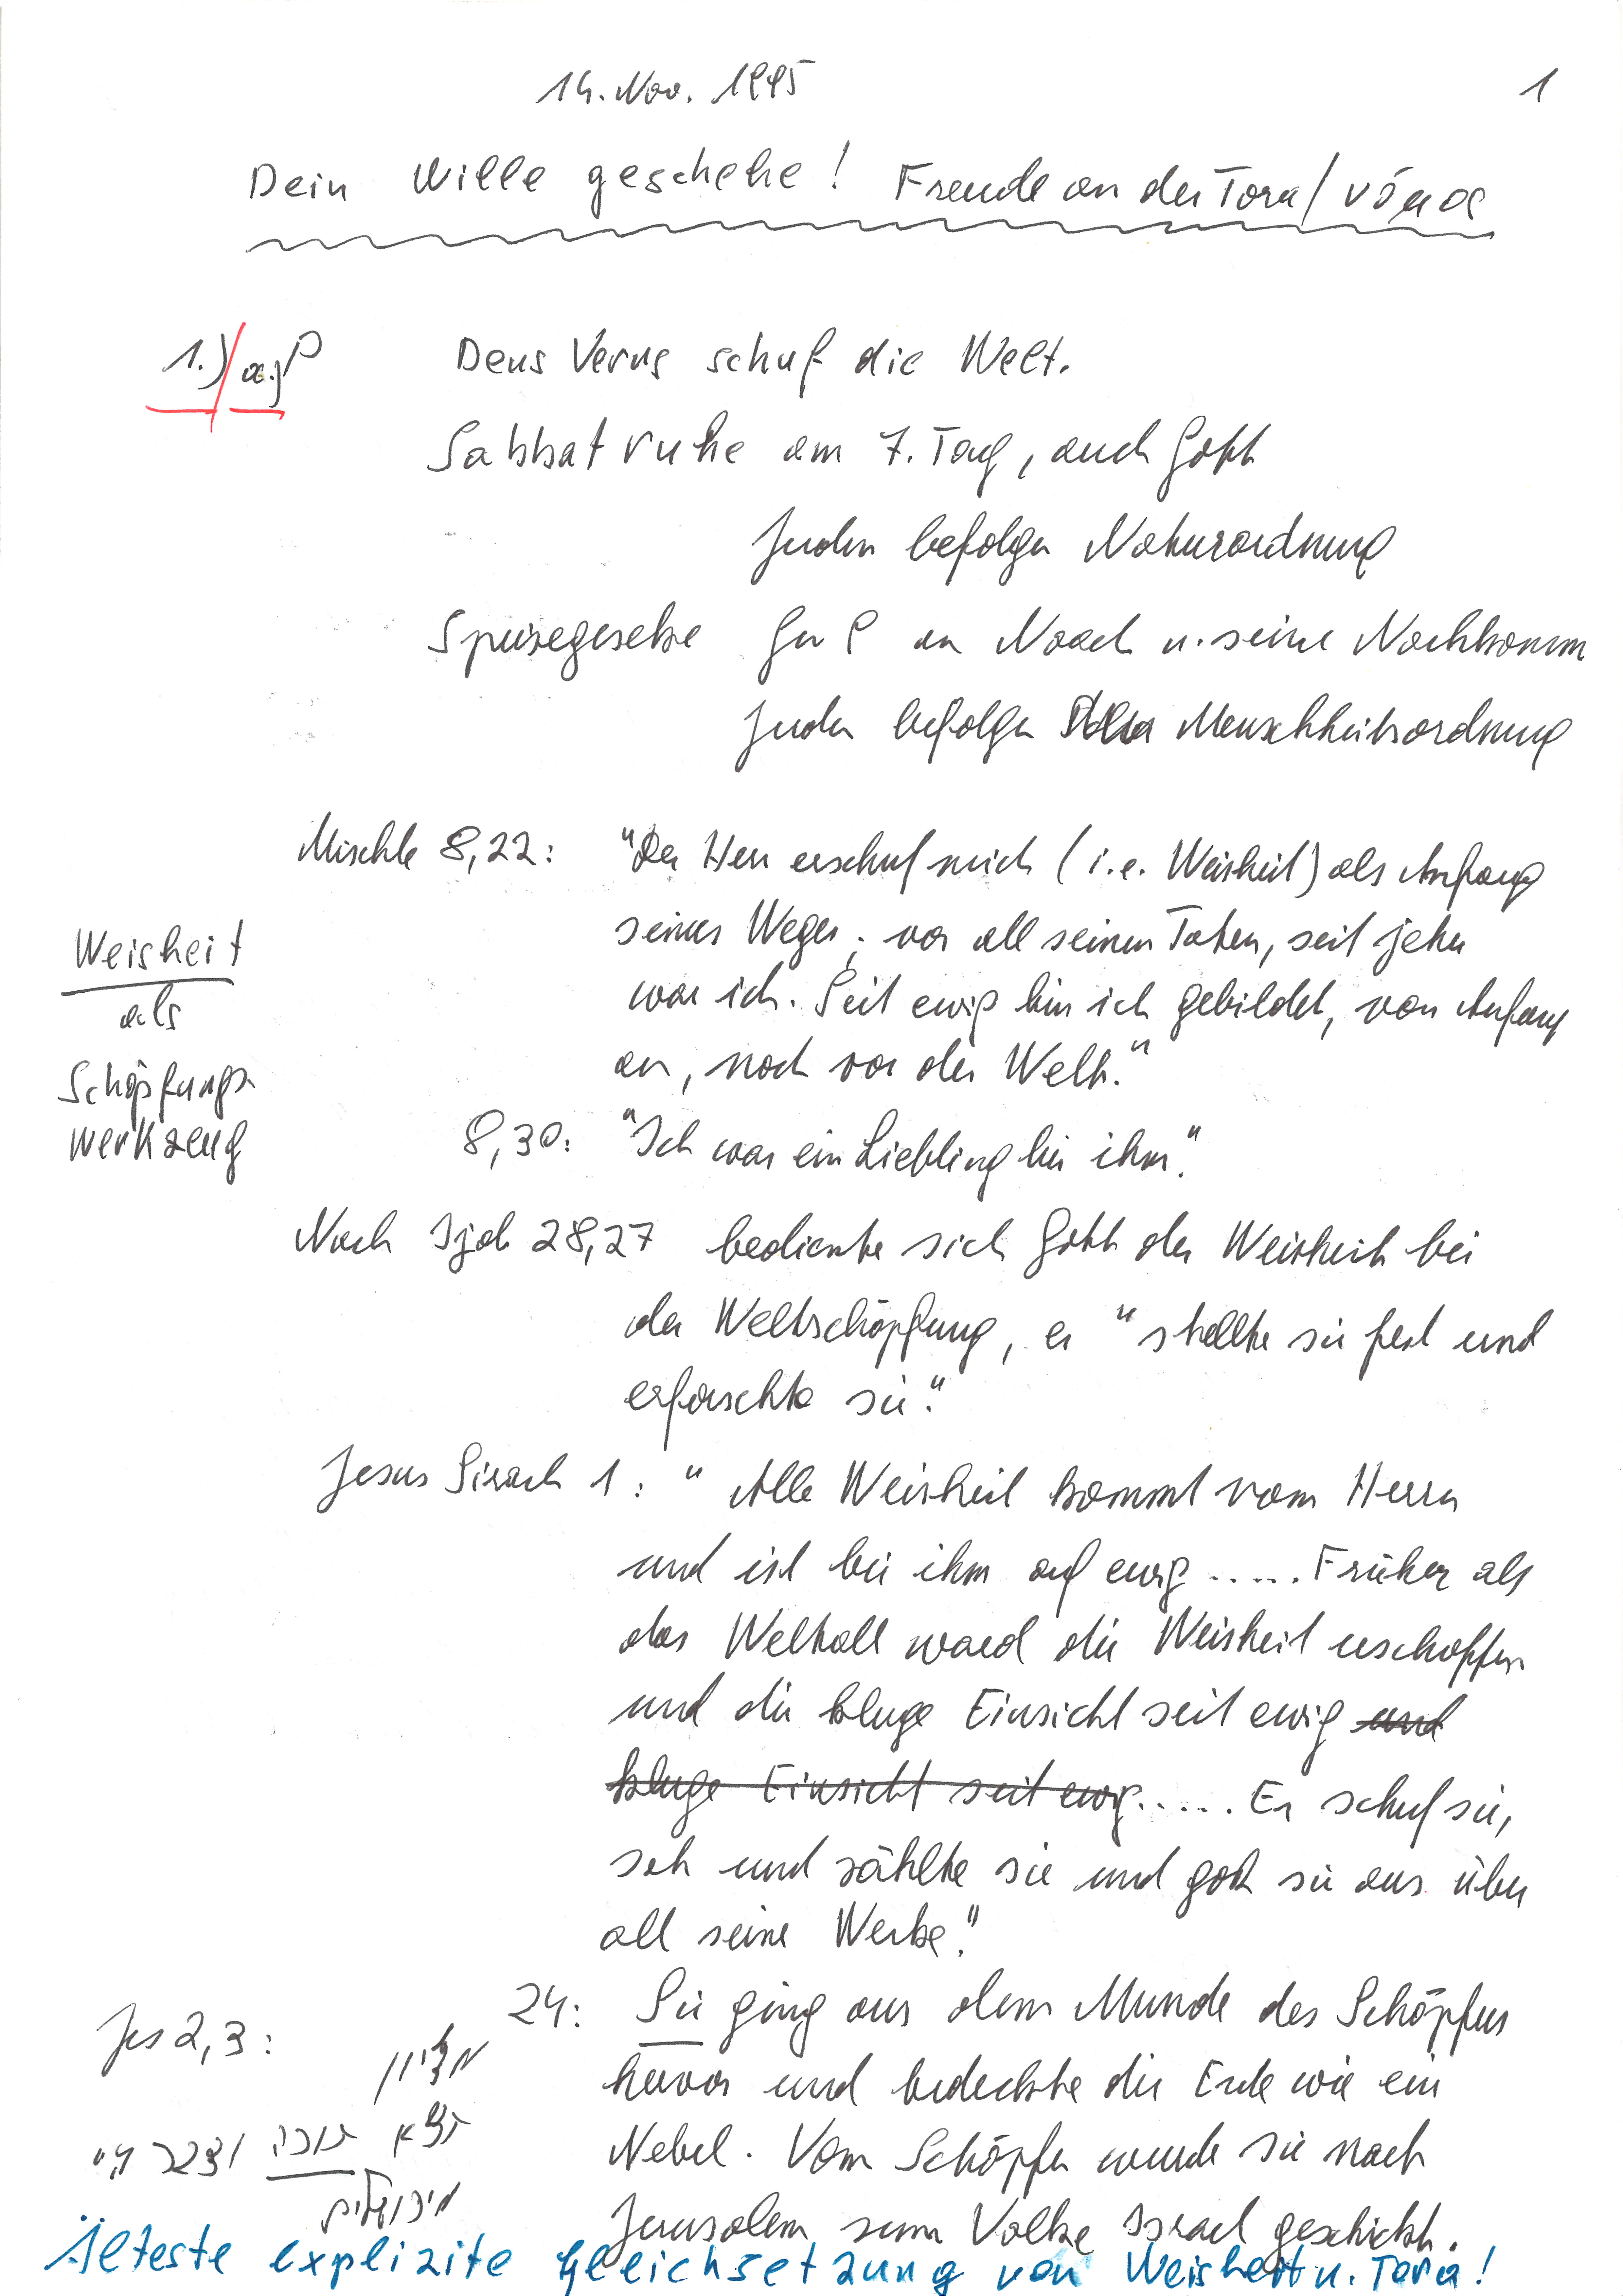 14. Nov. 1995
1
Dein Wille geschehe! Freude an der Tora / νόμος
1.) a.) P Deus Verus schuf die Welt.
Sabbatruhe am 7. Tag, auch Gott
Juden befolgen Naturordnung
Speisegesetze Gen 9 an Noach u. seine Nachkommen
Juden befolgen Menschheitsordnung
Mischle 8,22: "Der Herr erschuf mich (i.e. Weisheit) als Anfang
seines Weges, vor all seinen Taten, seit jeher
war ich. Seit ewig bin ich gebildet, von Anfang
an, noch vor der Welt."
Weisheit
als
Schöpfungs-
werkzeug
8,30: "Ich war ein Liebling bei ihm."
Nach Ijob 28,27 bediente sich Gott der Weisheit bei
der Weltschöpfung, er "stellte sie fest und
erforschte sie."
Jesus Sirach 1: "Alle Weisheit kommt vom Herrn
und ist bei ihm auf ewig ..... Früher als
das Weltall ward die Weisheit erschaffen
und die kluge Einsicht seit ewig und
kluge Einsicht seit ewig ..... Er schuf sie,
sah und zählte sie und goß sie aus über
all seine Werke."
24: Sie ging aus dem Munde des Schöpfers
hervor und bedeckte die Erde wie ein
Nebel. Vom Schöpfer wurde sie nach
Jerusalem zum Volke Israel geschickt.
Jes 2,3:
מציון
תצא תורה ודבר ה'
מירושלים
Älteste explizite Gleichsetzung von Weisheit u. Tora!